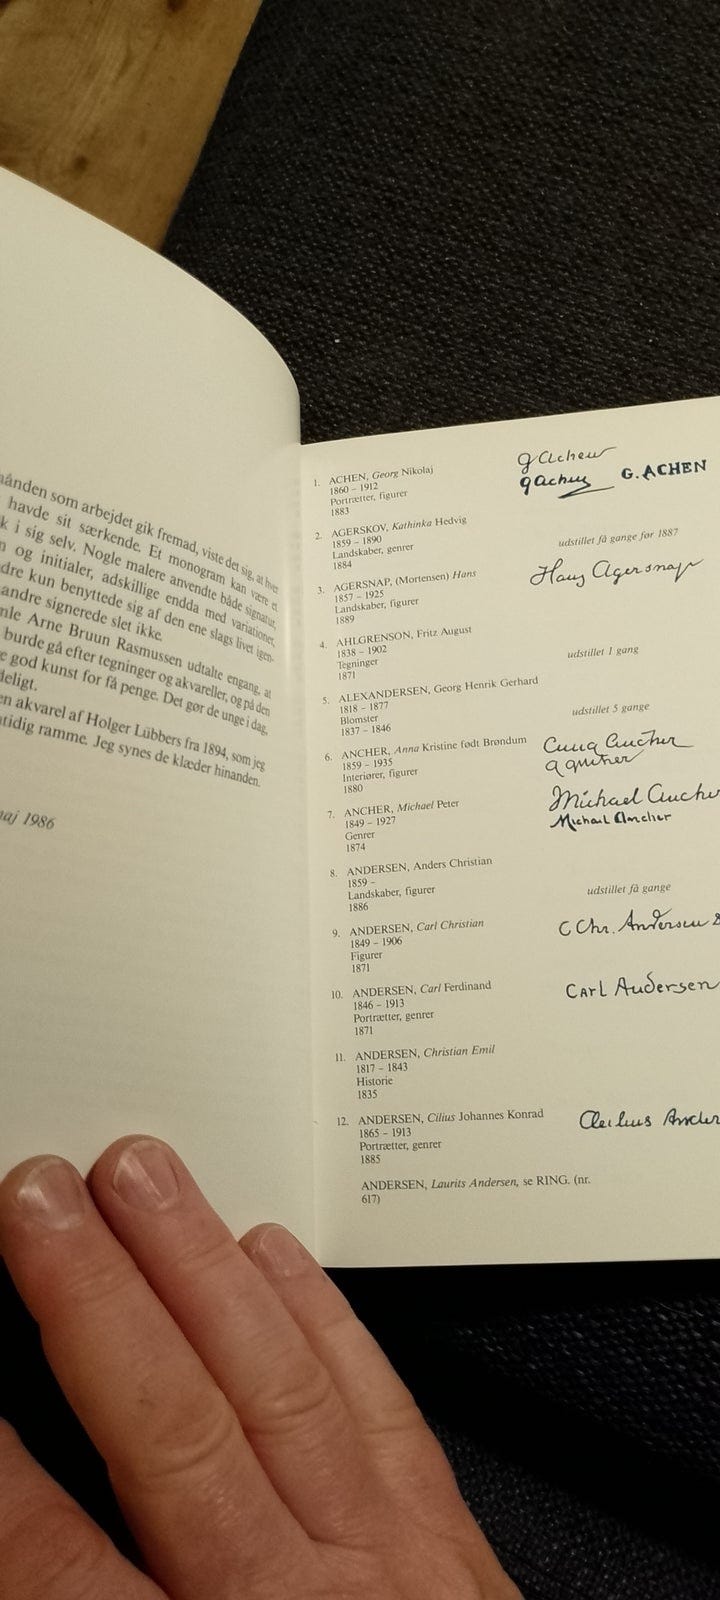 ånden som arbejdet gik fremad, viste det sig, at hver
havde sit særkende. Et monogram kan være et
k i sig selv. Nogle malere anvendte både signatur,
og initialer, adskillige endda med variationer,
dre kun benyttede sig af den ene slags livet igen-
andre signerede slet ikke.
mle Arne Bruun Rasmussen udtalte engang, at
burde gå efter tegninger og akvareller, og på den
e god kunst for få penge. Det gør de unge i dag,
deligt.
en akvarel af Holger Lübbers fra 1894, som jeg
tidig ramme. Jeg synes de klæder hinanden.
maj 1986
1. ACHEN, Georg Nikolaj
1860 – 1912
Portrætter, figurer
1883
g Achen
g Achen G. ACHEN
2. AGERSKOV, Kathinka Hedvig
1859 – 1890
Landskaber, genrer
1884
udstillet få gange før 1887
3. AGERSNAP, (Mortensen) Hans
1857 – 1925
Landskaber, figurer
1889
Hans Agersnap
4. AHLGRENSON, Fritz August
1838 – 1902
Tegninger
1871
udstillet 1 gang
5. ALEXANDERSEN, Georg Henrik Gerhard
1818 – 1877
Blomster
1837 – 1846
udstillet 5 gange
6. ANCHER, Anna Kristine født Brøndum
1859 – 1935
Interiører, figurer
1880
Anna Ancher
A Ancher
7. ANCHER, Michael Peter
1849 – 1927
Genrer
1874
Michael Anche
Michael Ancher
8. ANDERSEN, Anders Christian
1859 –
Landskaber, figurer
1886
udstillet få gange
9. ANDERSEN, Carl Christian
1849 – 1906
Figurer
1871
C Chr. Andersen
10. ANDERSEN, Carl Ferdinand
1846 – 1913
Portrætter, genrer
1871
Carl Andersen
11. ANDERSEN, Christian Emil
1817 – 1843
Historie
1835
12. ANDERSEN, Cilius Johannes Konrad
1865 – 1913
Portrætter, genrer
1885
ANDERSEN, Laurits Andersen, se RING. (nr.
617)